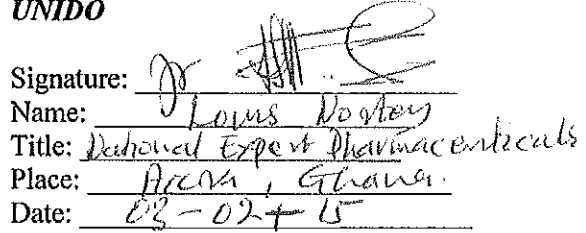 UNIDO
Signature:
Name: Louis Nortey
Title: National Expert Pharmaceuticals
Place: Accra, Ghana.
Date: 03-02-15